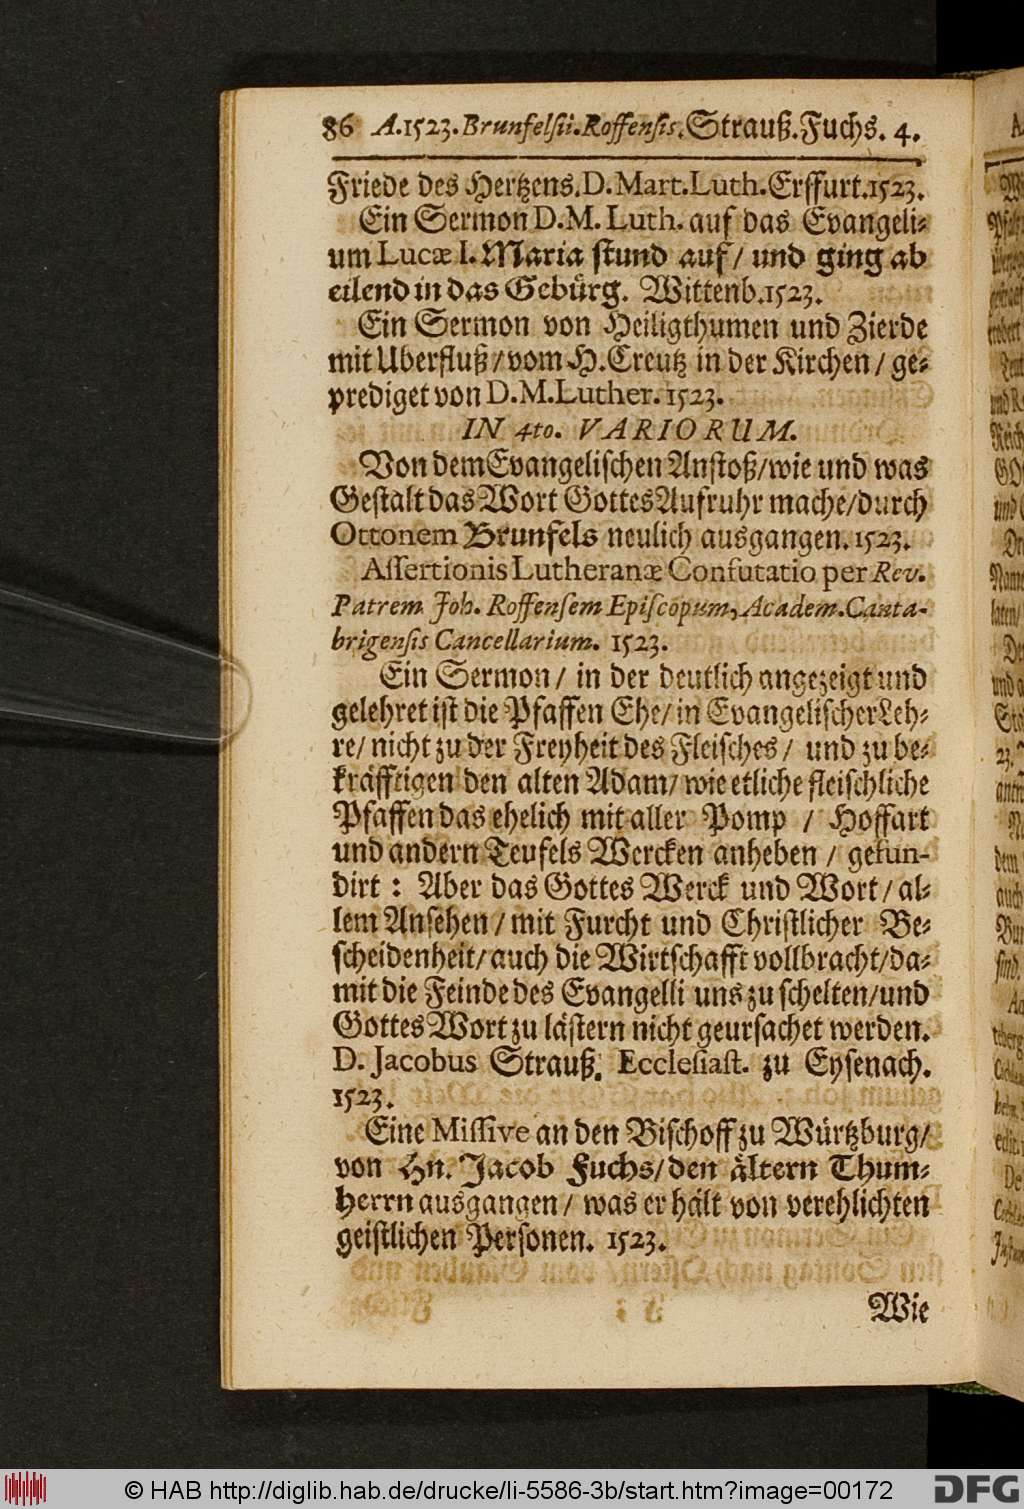 86 A.1523. Brunfelsii. Roffensis. Strauß. Fuchs. 4.
Friede des Hertzens. D. Mart. Luth. Erffurt. 1523.
Ein Sermon D. M. Luth. auf das Evangeli-
um Lucæ I. Maria stund auf / und ging ab
eilend in das Gebürg. Wittenb. 1523.
Ein Sermon von Heiligthumen und Zierde
mit Uberfluß / vom H. Creutz in der Kirchen / ge-
prediget von D. M. Luther. 1523.
IN 4to. VARIORUM.
Von dem Evangelischen Anstoß / wie und was
Gestalt das Wort Gottes Aufruhr mache / durch
Ottonem Brunfels neulich ausgangen. 1523.
Assertionis Lutheranæ Confutatio per Rev.
Patrem Joh. Roffensem Episcopum, Academ. Canta-
brigensis Cancellarium. 1523.
Ein Sermon / in der deutlich angezeigt und
gelehret ist die Pfaffen Ehe / in Evangelischer Leh-
re / nicht zu der Freyheit des Fleisches / und zu be-
kräfftigen den alten Adam / wie etliche fleischliche
Pfaffen das ehelich mit aller Pomp / Hoffart
und andern Teufels Wercken anheben / gefun-
dirt : Aber das Gottes Werck und Wort / al-
lem Ansehen / mit Furcht und Christlicher Be-
scheidenheit / auch die Wirtschafft vollbracht / da-
mit die Feinde des Evangelli uns zu schelten / und
Gottes Wort zu lästern nicht geursachet werden.
D. Jacobus Strauß. Ecclesiast. zu Eysenach.
1523.
Eine Missive an den Bischoff zu Würtzburg /
von Hn. Jacob Fuchs / den ältern Thum-
herrn ausgangen / was er hält von verehlichten
geistlichen Personen. 1523.
Wie
© HAB http://diglib.hab.de/drucke/li-5586-3b/start.htm?image=00172
DFG